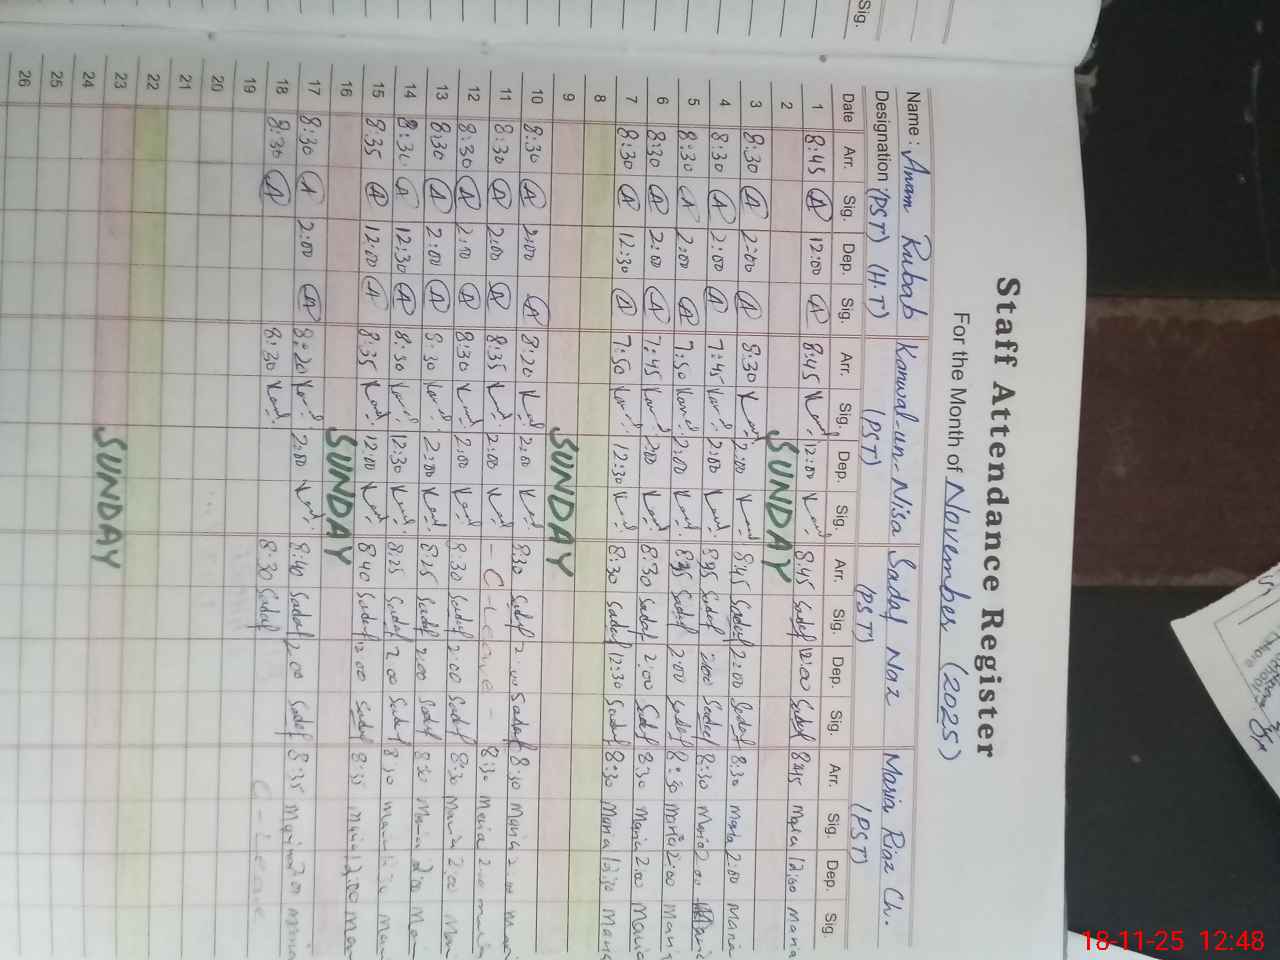 Sig.
Staff Attendance Register
For the Month of November (2025)
Name : Anam Rubab Kanwal-un-Nisa Sadaf Naz Maria Riaz Ch.
Designation (PST) (H.T) (PST) (PST) (PST)
Date Arr. Sig. Dep. Sig. Arr. Sig. Dep. Sig. Arr. Sig. Dep. Sig. Arr. Sig. Dep. Sig.
1 8:45 A 12:00 A 8:45 12:00 8:45 Sadaf 12:00 Sadaf 8:45 Maria 12:00 Maria
2 SUNDAY
3 8:30 A 2:00 A 8:30 2:00 8:45 Sadaf 2:00 Sadaf 8:30 Maria 2:00 Maria
4 8:30 A 2:00 A 7:45 2:00 Sadaf 2:00 Sadaf 8:30 Maria 2:00
5 8:30 A 2:00 A 7:50 2:00 Sadaf 2:00 Sadaf 8:30 Maria 2:00 Maria
6 8:30 A 2:00 A 7:45 2:00 8:30 Sadaf 2:00 Sadaf 8:30 Maria 2:00 Maria
7 8:30 A 12:30 A 7:50 12:30 8:30 Sadaf 12:30 Sadaf 8:30 Maria 12:30 Maria
8
9 SUNDAY
10 8:30 A 2:00 A 8:20 2:00 8:30 Sadaf 2:00 Sadaf 8:30 Maria 2:00
11 8:30 A 2:00 A 8:35 2:00 - C-Leave - 8:30 Maria 2:00
12 8:30 A 2:00 A 8:30 2:00 8:30 Sadaf 2:00 Sadaf 8:30 Maria 2:00
13 8:30 A 2:00 A 8:30 2:00 8:25 Sadaf 2:00 Sadaf 8:30 Maria 2:00
14 8:30 A 12:30 A 8:30 12:30 8:25 Sadaf Sadaf 8:30
15 8:35 A 12:00 A 8:35 12:00 8:40 Sadaf 12:00 Sadaf 8:35 Maria 12:00
16 SUNDAY
17 8:30 A 2:00 A 8:20 2:00 8:40 Sadaf 2:00 Sadaf 8:35
18 8:30 A 8:30 8:30 Sadaf C-Leave
19
20
21
22
23 SUNDAY
24
25
26
18-11-25 12:48